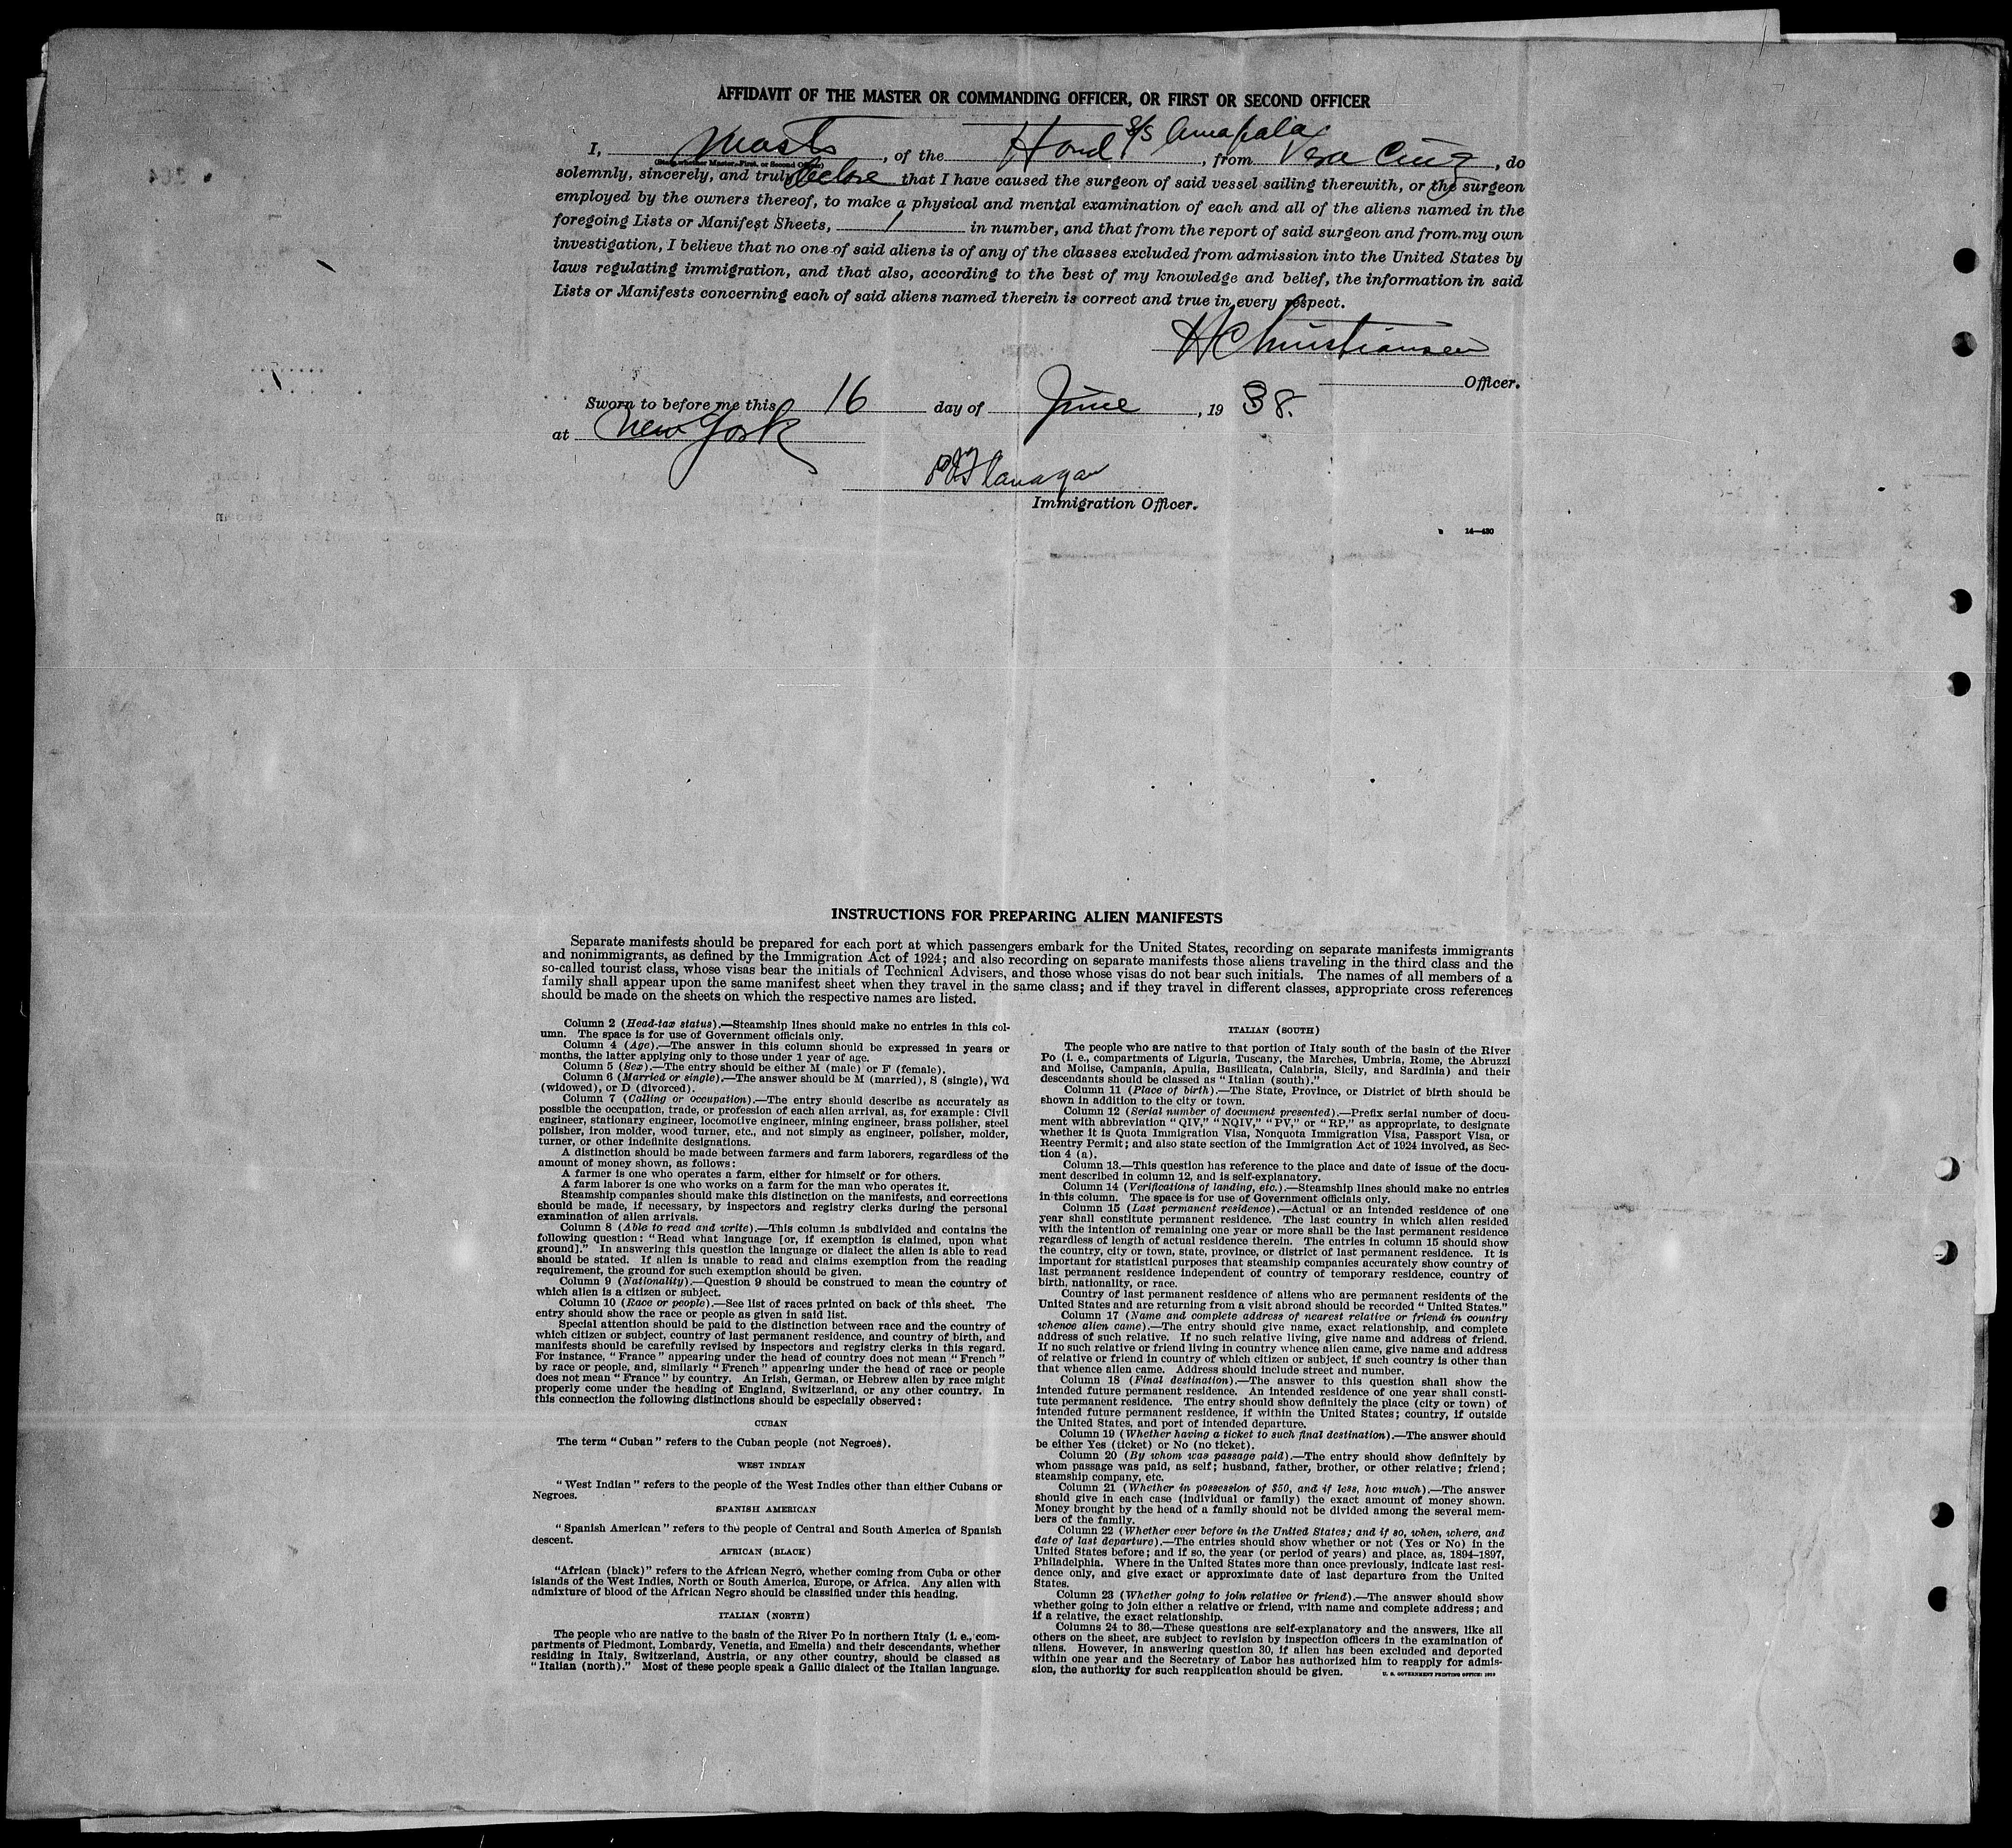 AFFIDAVIT OF THE MASTER OR COMMANDING OFFICER, OR FIRST OR SECOND OFFICER
I, Master, of the Hond S/S Amapala, from Vera Cruz, do
(State whether Master, First, or Second Officer)
solemnly, sincerely, and truly declare that I have caused the surgeon of said vessel sailing therewith, or the surgeon
employed by the owners thereof, to make a physical and mental examination of each and all of the aliens named in the
foregoing Lists or Manifest Sheets, 1 in number, and that from the report of said surgeon and from my own
investigation, I believe that no one of said aliens is of any of the classes excluded from admission into the United States by
laws regulating immigration, and that also, according to the best of my knowledge and belief, the information in said
Lists or Manifests concerning each of said aliens named therein is correct and true in every respect.
H Christiansen
Officer.
Sworn to before me this 16 day of June, 19 38.
at New York
Flanagan
Immigration Officer.
14—430
INSTRUCTIONS FOR PREPARING ALIEN MANIFESTS
Separate manifests should be prepared for each port at which passengers embark for the United States, recording on separate manifests immigrants
and nonimmigrants, as defined by the Immigration Act of 1924; and also recording on separate manifests those aliens traveling in the third class and the
so-called tourist class, whose visas bear the initials of Technical Advisers, and those whose visas do not bear such initials. The names of all members of a
family shall appear upon the same manifest sheet when they travel in the same class; and if they travel in different classes, appropriate cross references
should be made on the sheets on which the respective names are listed.
Column 2 (Head-tax status).—Steamship lines should make no entries in this col-
umn. The space is for use of Government officials only.
Column 4 (Age).—The answer in this column should be expressed in years or
months, the latter applying only to those under 1 year of age.
Column 5 (Sex).—The entry should be either M (male) or F (female).
Column 6 (Married or single).—The answer should be M (married), S (single), Wd
(widowed), or D (divorced).
Column 7 (Calling or occupation).—The entry should describe as accurately as
possible the occupation, trade, or profession of each alien arrival, as, for example: Civil
engineer, stationary engineer, locomotive engineer, mining engineer, brass polisher, steel
polisher, iron molder, wood turner, etc., and not simply as engineer, polisher, molder,
turner, or other indefinite designations.
A distinction should be made between farmers and farm laborers, regardless of the
amount of money shown, as follows:
A farmer is one who operates a farm, either for himself or for others.
A farm laborer is one who works on a farm for the man who operates it.
Steamship companies should make this distinction on the manifests, and corrections
should be made, if necessary, by inspectors and registry clerks during the personal
examination of alien arrivals.
Column 8 (Able to read and write).—This column is subdivided and contains the
following question: "Read what language [or, if exemption is claimed, upon what
ground]." In answering this question the language or dialect the alien is able to read
should be stated. If alien is unable to read and claims exemption from the reading
requirement, the ground for such exemption should be given.
Column 9 (Nationality).—Question 9 should be construed to mean the country of
which alien is a citizen or subject.
Column 10 (Race or people).—See list of races printed on back of this sheet. The
entry should show the race or people as given in said list.
Special attention should be paid to the distinction between race and the country of
which citizen or subject, country of last permanent residence, and country of birth, and
manifests should be carefully revised by inspectors and registry clerks in this regard.
For instance, "France" appearing under the head of country does not mean "French"
by race or people, and, similarly "French" appearing under the head of race or people
does not mean "France" by country. An Irish, German, or Hebrew alien by race might
properly come under the heading of England, Switzerland, or any other country. In
this connection the following distinctions should be especially observed:
CUBAN
The term "Cuban" refers to the Cuban people (not Negroes).
WEST INDIAN
"West Indian" refers to the people of the West Indies other than either Cubans or
Negroes.
SPANISH AMERICAN
"Spanish American" refers to the people of Central and South America of Spanish
descent.
AFRICAN (BLACK)
"African (black)" refers to the African Negro, whether coming from Cuba or other
islands of the West Indies, North or South America, Europe, or Africa. Any alien with
admixture of blood of the African Negro should be classified under this heading.
ITALIAN (NORTH)
The people who are native to the basin of the River Po in northern Italy (i. e., com-
partments of Piedmont, Lombardy, Venetia, and Emelia) and their descendants, whether
residing in Italy, Switzerland, Austria, or any other country, should be classed as
"Italian (north)." Most of these people speak a Gallic dialect of the Italian language.
ITALIAN (SOUTH)
The people who are native to that portion of Italy south of the basin of the River
Po (i. e., compartments of Liguria, Tuscany, the Marches, Umbria, Rome, the Abruzzi
and Molise, Campania, Apulia, Basilicata, Calabria, Sicily, and Sardinia) and their
descendants should be classed as "Italian (south)."
Column 11 (Place of birth).—The State, Province, or District of birth should be
shown in addition to the city or town.
Column 12 (Serial number of document presented).—Prefix serial number of docu-
ment with abbreviation "QIV," "NQIV," "PV," or "RP," as appropriate, to designate
whether it is Quota Immigration Visa, Nonquota Immigration Visa, Passport Visa, or
Reentry Permit; and also state section of the Immigration Act of 1924 involved, as Sec-
tion 4 (a).
Column 13.—This question has reference to the place and date of issue of the docu-
ment described in column 12, and is self-explanatory.
Column 14 (Verifications of landing, etc.).—Steamship lines should make no entries
in this column. The space is for use of Government officials only.
Column 15 (Last permanent residence).—Actual or an intended residence of one
year shall constitute permanent residence. The last country in which alien resided
with the intention of remaining one year or more shall be the last permanent residence
regardless of length of actual residence therein. The entries in column 15 should show
the country, city or town, state, province, or district of last permanent residence. It is
important for statistical purposes that steamship companies accurately show country of
last permanent residence independent of country of temporary residence, country of
birth, nationality, or race.
Country of last permanent residence of aliens who are permanent residents of the
United States and are returning from a visit abroad should be recorded "United States."
Column 17 (Name and complete address of nearest relative or friend in country
whence alien came).—The entry should give name, exact relationship, and complete
address of such relative. If no such relative living, give name and address of friend.
If no such relative or friend living in country whence alien came, give name and address
of relative or friend in country of which citizen or subject, if such country is other than
that whence alien came. Address should include street and number.
Column 18 (Final destination).—The answer to this question shall show the
intended future permanent residence. An intended residence of one year shall consti-
tute permanent residence. The entry should show definitely the place (city or town) of
intended future permanent residence, if within the United States; country, if outside
the United States, and port of intended departure.
Column 19 (Whether having a ticket to such final destination).—The answer should
be either Yes (ticket) or No (no ticket).
Column 20 (By whom was passage paid).—The entry should show definitely by
whom passage was paid, as self; husband, father, brother, or other relative; friend;
steamship company, etc.
Column 21 (Whether in possession of $50, and if less, how much).—The answer
should give in each case (individual or family) the exact amount of money shown.
Money brought by the head of a family should not be divided among the several mem-
bers of the family.
Column 22 (Whether ever before in the United States; and if so, when, where, and
date of last departure).—The entries should show whether or not (Yes or No) in the
United States before; and if so, the year (or period of years) and place, as, 1894–1897,
Philadelphia. Where in the United States more than once previously, indicate last resi-
dence only, and give exact or approximate date of last departure from the United
States.
Column 23 (Whether going to join relative or friend).—The answer should show
whether going to join either a relative or friend, with name and complete address; and
if a relative, the exact relationship.
Columns 24 to 36.—These questions are self-explanatory and the answers, like all
others on the sheet, are subject to revision by inspection officers in the examination of
aliens. However, in answering question 30, if alien has been excluded and deported
within one year and the Secretary of Labor has authorized him to reapply for admis-
sion, the authority for such reapplication should be given.
U. S. GOVERNMENT PRINTING OFFICE